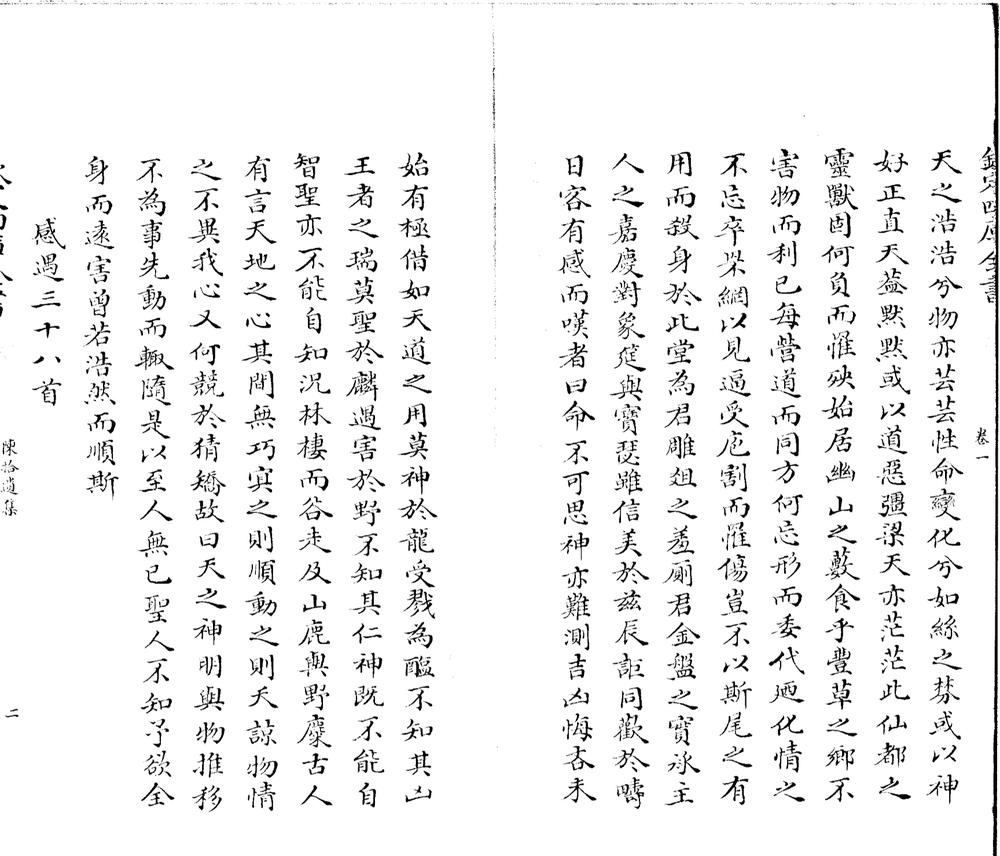 欽定四庫全書
卷一
天之浩浩兮物亦芸芸性命變化兮如絲之棼或以神
好正直天葢默默或以道惡彊梁天亦茫茫此仙都之
靈獸固何負而罹殃始居幽山之藪食乎豐草之鄉不
害物而利已每營道而同方何忘形而委代廼化情之
不忘卒柴網以見逼受庖割而罹傷豈不以斯尾之有
用而殺身於此堂為君雕俎之羞厠君金盤之寶承主
人之嘉慶對象筵與寶瑟雖信美於兹辰詎同歡於疇
日客有感而嘆者曰命不可思神亦難測吉凶悔吝未
始有極借如天道之用莫神於龍受戮為醢不知其凶
王者之瑞莫聖於麟遇害於野不知其仁神既不能自
智聖亦不能自知況林棲而谷走及山鹿與野麋古人
有言天地之心其閒無巧㝠之則順動之則天諒物情
之不異我心又何競於猜矯故曰天之神明與物推移
不為事先動而輒隨是以至人無已聖人不知予欲全
身而遠害曾若浩然而順斯
感遇三十八首
陳拾遺集
二